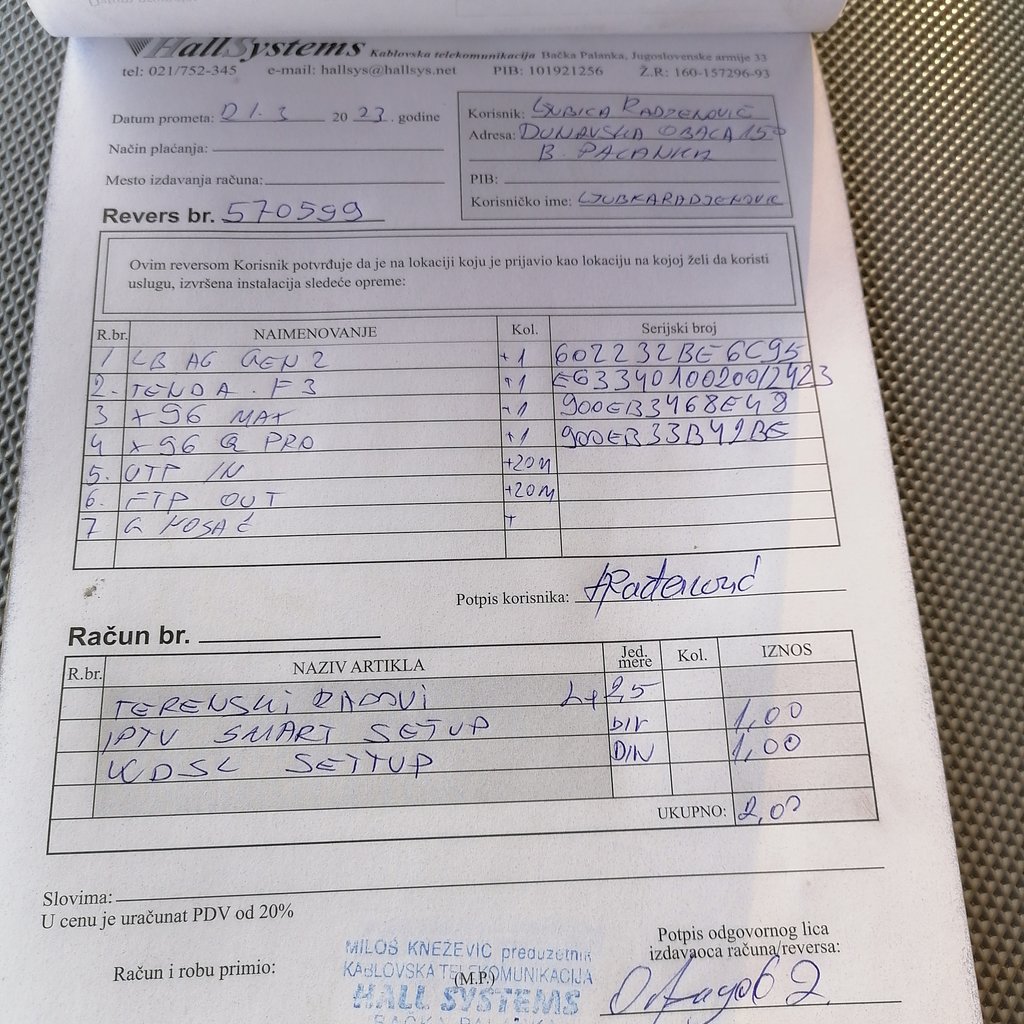 HallSystems Kablovska telekomunikacija Bačka Palanka, Jugoslovenske armije 33
tel: 021/752-345 e-mail: hallsys@hallsys.net PIB: 101921256 Ž.R: 160-157296-93
Datum prometa: 01.3 2023. godine
Način plaćanja:
Mesto izdavanja računa:
Revers br. 570599
Korisnik: LJUBICA RADJENOVIĆ
Adresa: DUNAVSKA OBALA 150
B. PALANKA
PIB:
Korisničko ime: LJUBKARADJENOVIC
Ovim reversom Korisnik potvrđuje da je na lokaciji koju je prijavio kao lokaciju na kojoj želi da koristi
uslugu, izvršena instalacija sledeće opreme:
R.br. NAIMENOVANJE Kol. Serijski broj
1 LB AC GEN 2 +1 602232BE6C95
2. TENDA F3 +1 E6334010020012423
3 X96 MAX +1 900EB3468E48
4 X96 Q PRO +1 900EB33B42BE
5. UTP IN +20M
6. FTP OUT +20M
7 G NOSAČ +
Potpis korisnika:
Račun br.
R.br. NAZIV ARTIKLA Jed. mere Kol. IZNOS
TERENSKI RADOVI L+25
IPTV SMART SETUP DIN 1,00
KDSL SETTUP DIN 1,00
UKUPNO: 2,00
Slovima:
U ​cenu je uračunat PDV od 20%
Račun i robu primio:
(M.P.)
MILOŠ KNEŽEVIĆ preduzetnik
KABLOVSKA TELEKOMUNIKACIJA
HALL SYSTEMS
BAČKA PALANKA
Potpis odgovornog lica
izdavaoca računa/reversa: